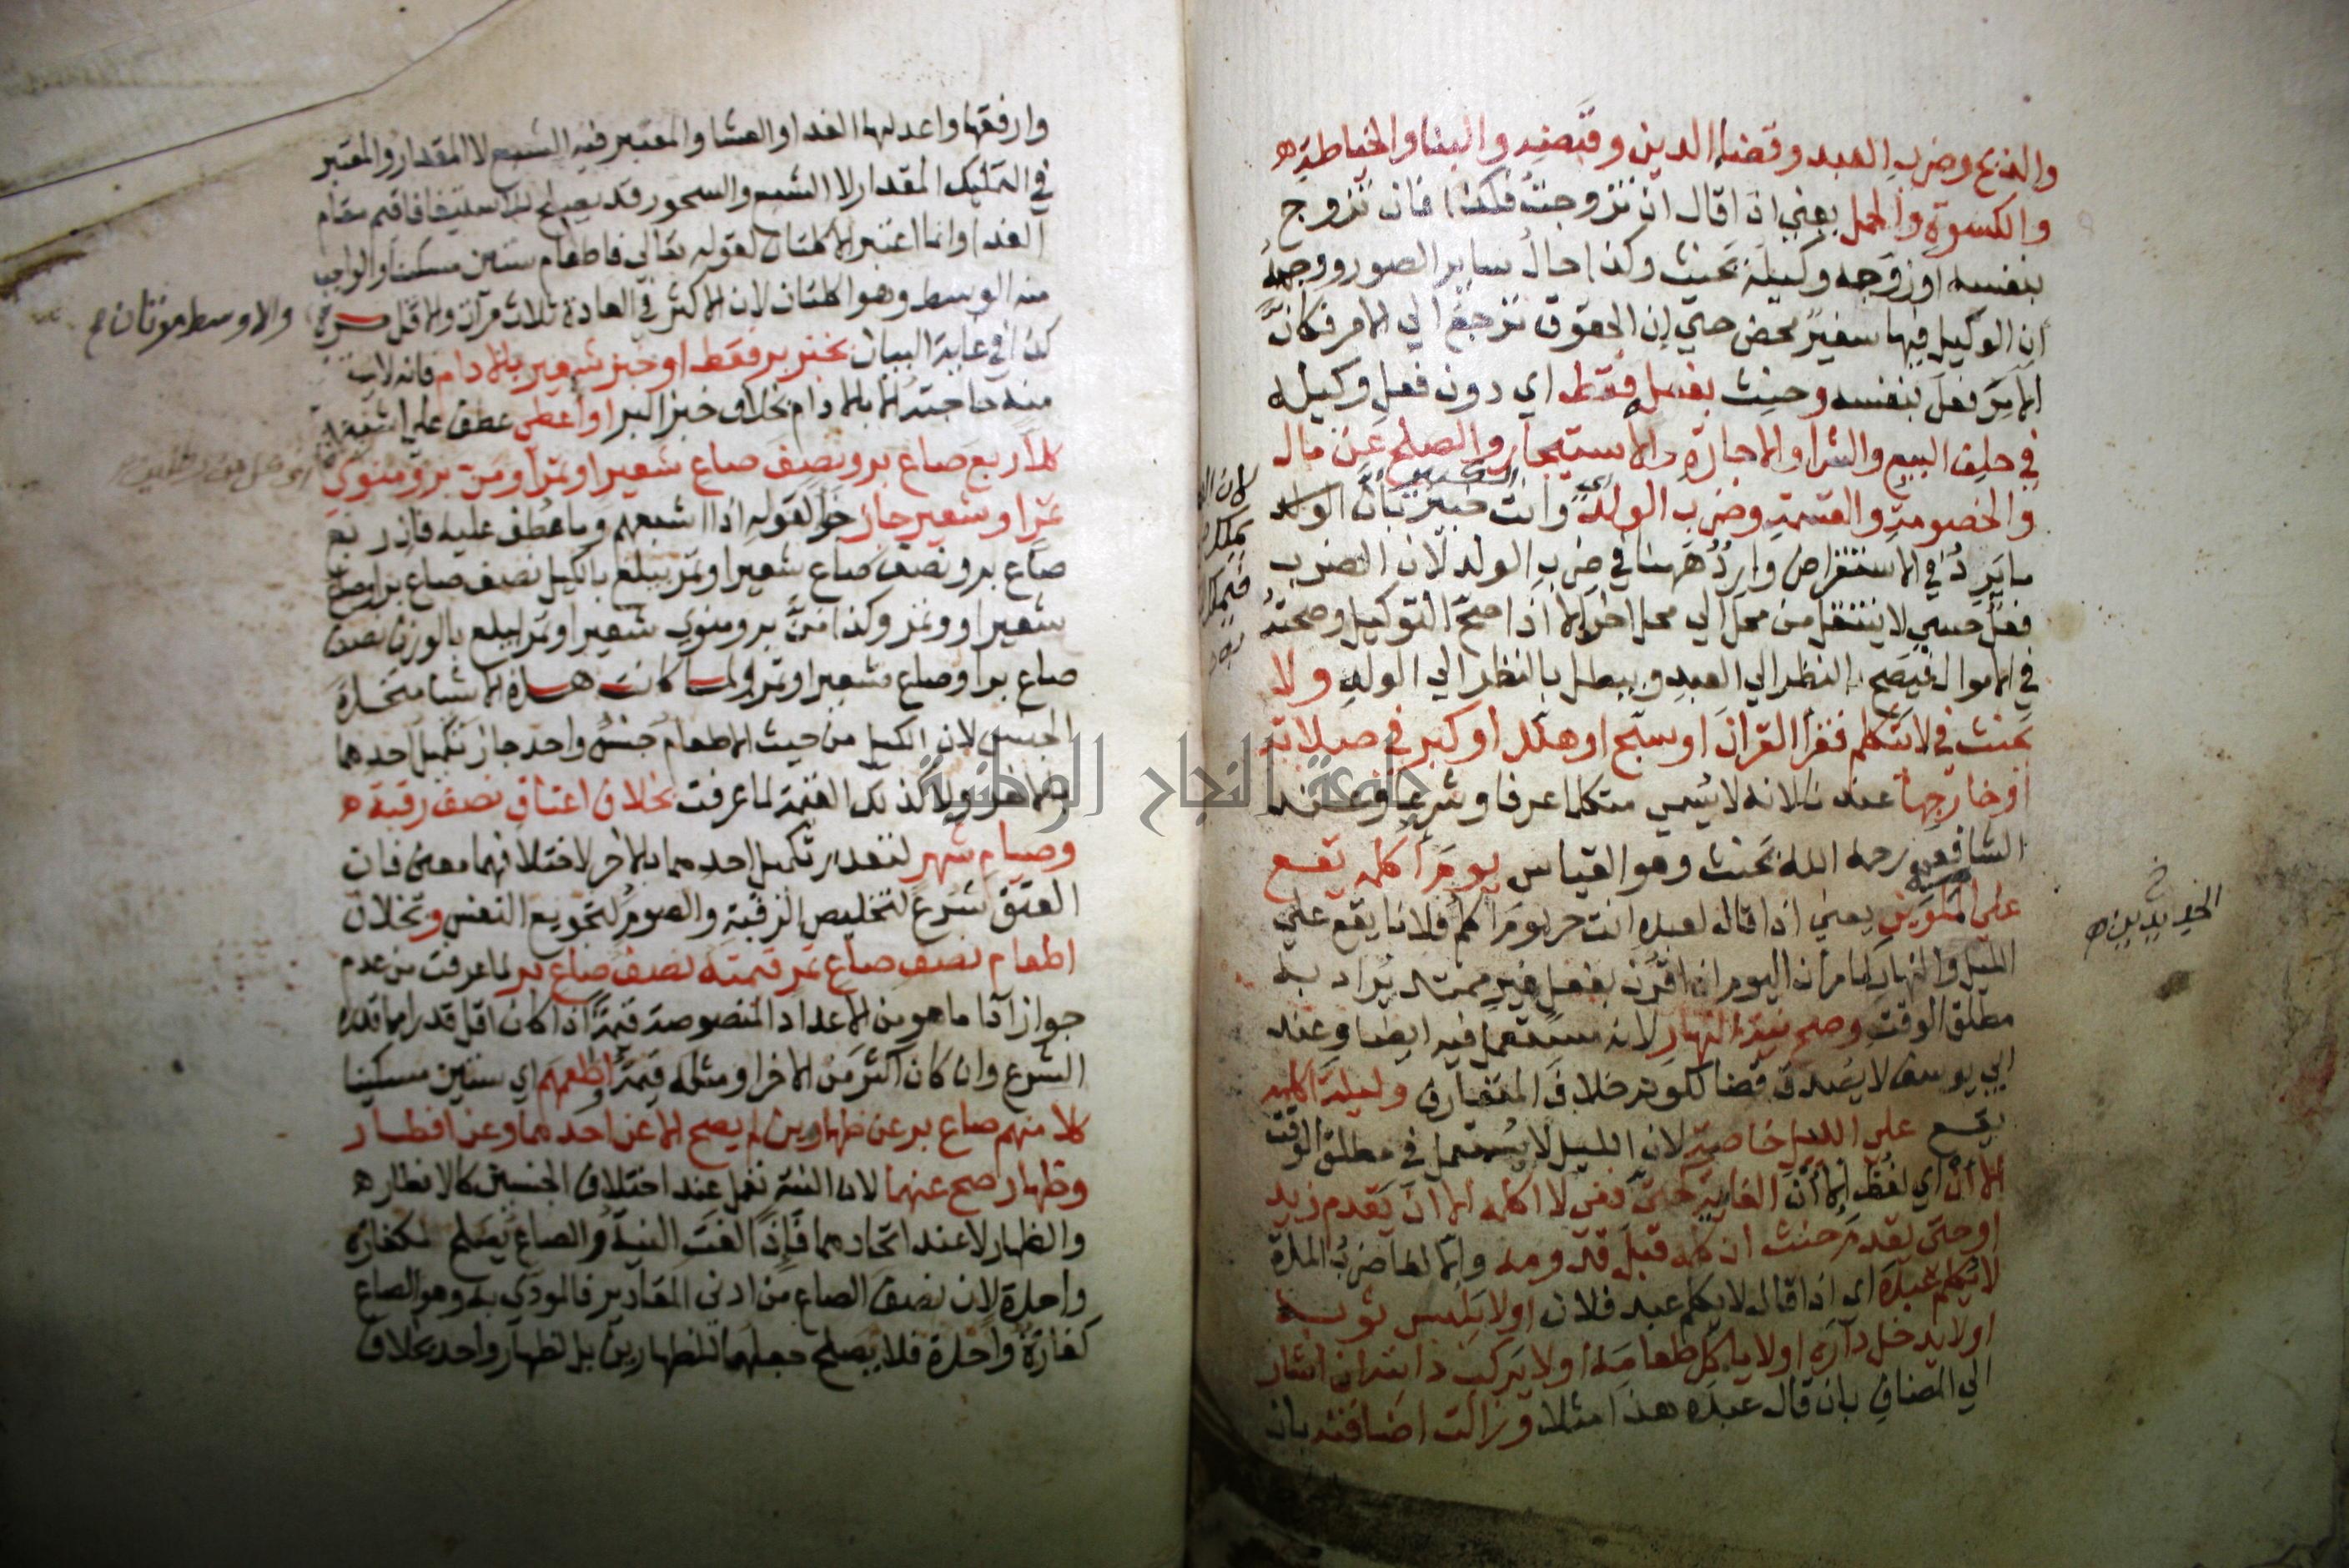 والذبح وضرب العبد وقضاء الدين وقبضه والبناء والخياطة
والكسوة والحمل يعني اذا قال ان تزوجت فكذا فان تزوج
بنفسه او زوجه وكيله يحنث وكذا حال ساير الصور ووجهه
ان الوكيل فيها سفير محض حتي إن الحقوق ترجع الي الامر فكان
الامر فعل بنفسه وحنث بفعله فقط اي دون فعل وكيله
في حلف البيع والشرا والاجارة والاستيجار والصلح عن مال
والخصومة والقسمة وضرب الولد وانت خبير بان الوارد
ما يرد في الاستقراض وارد ههنا في ضرب الولد لان الضرب
فعل حسي لا ينتقل من محل الي محل اخر الا اذا صح التوكيل وصحته
في الاموال فيصح بالنظر الي العبد ويبطل بالنظر الي الولد ولا
يحنث في لا يتكلم فقرا القران او سبح او هلل او كبر في صلاته
او خارجها عندنا لانه لا يسمي متكلما عرفا وشرعا وعند
الشافعي رحمه الله يحنث وهو القياس يوم اكلمه يقع
علي الملوين يعني اذا قال لعبده انت حر يوم اكلم فلانا يقع علي
الليل والنهار لما مر ان اليوم اذا قرن بفعل غير ممتد يراد به
مطلق الوقت وصح نية النهار لانه مستعمل فيه ايضا وعند
ابي يوسف لا يصدق قضا لكونه خلاف المتعارف وليلة اكلمه
يقع علي الليل خاصة لان الليل لا يستعمل في مطلق الوقت
الا ان اي لفظ الا ان الغاية كحتي ففي لا اكلمه الا ان يقدم زيد
او حتي يقدم حنث ان كلمه قبل قدومه
لا يكلم عبده اي اذا قال لا يكلم عبد فلان او لا يلبس ثوبه
او لا يدخل داره او لا ياكل طعامه او لا يركب دابته ان اشار
الي المضاف بان قال عبده هذا مثلا وزالت اضافته بان
الجديدين
وارفقها واعدلها الغدا والعشا والمعتبر فيه الشبع لا المقدار والمعتبر
في التمليك المقدار لا الشبع والسحور قد يصلح للاستيفا فاقيم مقام
الغدا وانما اعتبر الاكلتان لقوله تعالي فاطعام ستين مسكينا والواجب
منه الوسط وهو اكلتان لان الاكثر في العادة ثلاث مرات والاقل مرة
والاوسط مرتان
كذا في غاية البيان بخبز بر فقط او خبز شعير بالادام فانه لا
منه حاجته الا بالادام بخلاف خبز البر او اعطي عطف علي اشبعهم
كلا ربع صاع بر ونصف صاع شعير او تمر او من بر ومنوي
تمر او شعير جاز جوابا لقوله اذا اشبعهم وما عطف عليه فان ربع
صاع بر ونصف صاع شعير او تمر يبلغ بالكيل نصف صاع بر او صاع
شعير او تمر وكذا من بر ومنوي شعير او تمر يبلغ بالوزن نصف
صاع بر او صاع شعير او تمر ولما كانت هذه الاشيا متحدة
الجنس لان الكل من حيث الاطعام جنس واحد جاز تكميل احدهما
بالاخر ولا كذلك القيمة لما عرفت بخلاف اعتاق نصف رقبة
وصيام شهر لتعذر تكميل احدهما بالاخر لاختلافهما معني فان
العتق شرع لتخليص الرقبة والصوم لتجويع النفس وبخلاف
اطعام نصف صاع تمر قيمته نصف صاع بر لما عرفت من عدم
جواز ادا ما هو من الاعداد المنصوصة قيمة اذا كان اقل قدرا مما قدره
الشرع وان كان اكثر من الاخر او مثله قيمة اطعمهم اي ستين مسكينا
كلا منهم صاع بر عن ظهارين لم يصح الا عن احدهما وعن افطار
وظهار صح عنهما لان النية تعمل عند اختلاف الجنسين كالافطار
والظهار لا عند اتحادهما فاذا لغت النية والصاع يصلح لكفارة
واحدة لان نصف الصاع من ادني المقادير فالمودي به وهو الصاع
كفارة واحدة فلا يصلح جعلها للظهارين بل لظهار واحد بخلاف
جامعة النجاح الوطنية